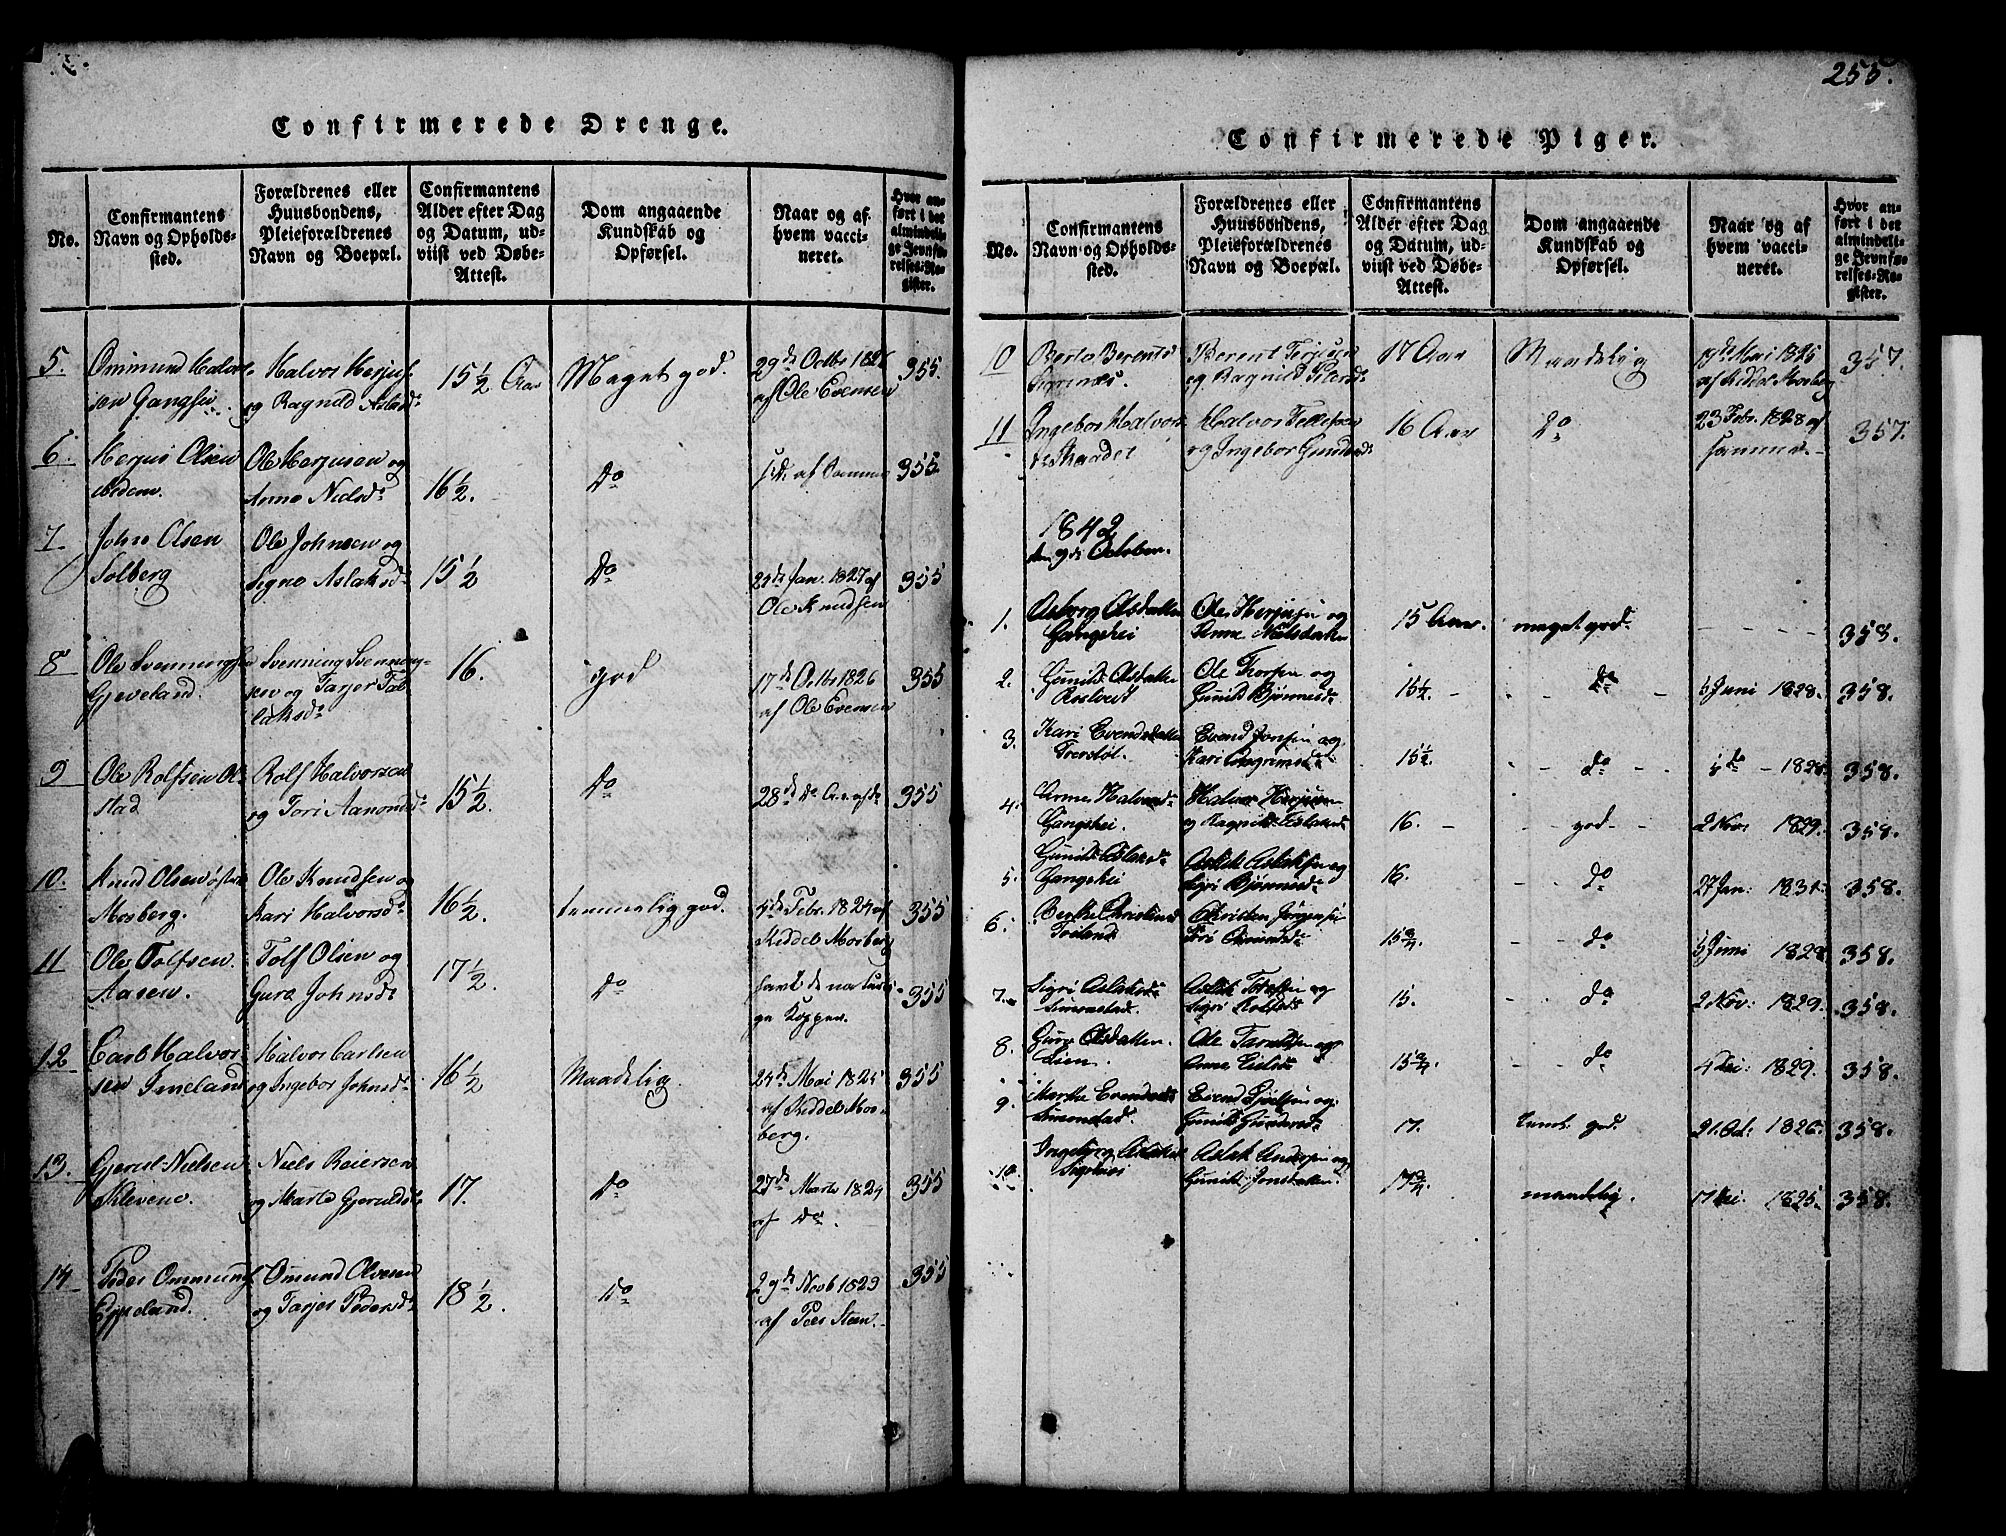 255.
Confirmerede Drenge.
No.
Confirmantens
Navn og Opholds-
sted.
Forældrenes eller
Huusbondens,
Pleieforældrenes
Navn og Boepæl.
Confirmantens
Alder efter Dag
og Datum, ud-
viist ved Døbe-
Attest.
Dom angaaende
Kundskab og
Opførsel.
Naar og af
hvem vacci-
neret.
Hvor an-
ført i det
almindeli-
ge Jevnfø-
relses-Re-
gister.
5.
Ommund Halvor-
sen
Halvor Herjus.
og Ragnild Aslaksd.
15 1/2 Aar
Meget god.
29de Octbr 1826
af Ole Evensen
355.
6.
Herjus Olsen
ibidem.
Ole Herjusen og
Anne Nielsdr
16 1/2.
do
af Samme
355
7
John Olsen
Solberg
Ole Johnsen og
Signe Aslaksd.
15 1/2
do
24de Jan. 1827 af
Ole Knudsen
355
8
Ole Svenningsen
Gjeveland.
Svenning Svenning-
sen og Tarjer Tal-
laksdr
16.
god
17de Octbr 1826
af Ole Evensen
355
9
Ole Rolfsen Ol-
stad
Rolf Halvorsen
og Tori Aamondsdr
15 1/2.
do
28de do
355
10.
Knud Olsen
Mosberg.
Ole Knudsen og
Kari Halvorsdr
16 1/2.
temmelig god.
Febr. 1824 af
Keddel Mosberg
355
11
Ole Tolfsen.
Aasen.
Tolf Olsen og
Guro Johnsd.
17 1/2.
do
havt de naturli-
ge Kopper.
355
12
Carl Halvor-
sen Imeland
Halvor Carlsen
og Ingebor Johnsdr
16 1/2
Maadelig.
24de Mai 1825
af Keddel Mos-
berg.
355
13.
Gjerul Nielsen
Klevene.
Niels Reiersen
og Marte Gjeruldsd.
17.
do
27de Marts 1824
af do.
355
14
Peder Ommunds.
Eppeland.
Omund Olvesen
og Tarjer Pedersdr
18 1/2.
do
29de Novb 1823
af Peer Steen.
355
Confirmerede Piger.
No.
Confirmantens
Navn og Opholds-
sted.
Forældrenes eller
Huusbondens,
Pleieforældrenes
Navn og Boepæl.
Confirmantens
Alder efter Dag
og Datum, ud-
viist ved Døbe-
Attest.
Dom angaaende
Kundskab og
Opførsel.
Naar og af
hvem vacci-
neret.
Hvor an-
ført i det
almindeli-
ge Jevnfø-
relses-Re-
gister.
10
Berte Berentsd.
Berent Terjesen
og Ragnild
17 Aar
Maadelig
Mai 1825
af Keddel Mosberg
357.
11
Ingebor Halvors-
dr
Halvor Tellefsen
og Ingebor Gundersdr
16 Aar
do
23 Febr. 1828 af
samme.
357.
1842
den 9de October.
1.
Asborg Olsdatter
Gangshei
Ole Herjusen og
Anne Nielsdatter
15 Aar.
meget god.
358.
2.
Gunild Olsdatter
Ole Thorsen og
Gunild Bjørnsdr
15 1/2.
do
5 Juni 1828.
358.
3.
Kari Evendsdatter
Evend Jonsen og
Kari
15 1/2.
do
do 1828
358.
4.
Anne Halvorsdr
Gangshei.
Halvor Herjusen
og Ragnild Aslaksdr
16.
god
2 Nov: 1829.
358.
5.
Gunild Aslaksdr
Gangshei
Aslak Aslaksen og
Sigri Bjørnsdr
16.
do
27 Jan: 1831.
358.
6.
Berthe Christensd.
Christen Jørgensen
15 3/4.
do
5 Juni 1828
358.
7.
Sigri Aslaksdr
Simonstad.
Aslak
Sigri
15.
do
2 Nov: 1829.
358.
8.
Guro Olsdatter.
Lien.
Ole
Anne
15 3/4.
do
1829.
358.
9.
Marthe Evendsdr
Simonstad.
Evend
Gunild Gundersdr
17.
tem. god.
21 Oct: 1826.
358.
10.
Ingeborg Aslaksd.
Aslak Andersen og
Gunild Jonsdatter.
17 3/4.
maadelig.
17 1825.
358.